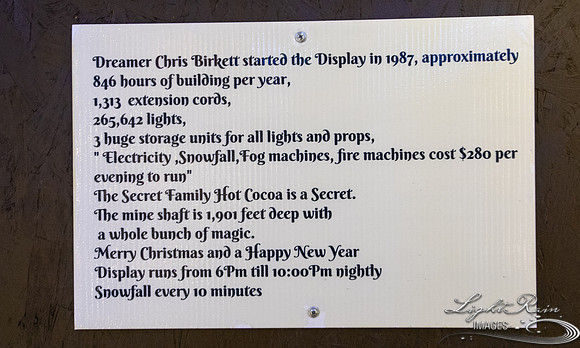 Dreamer Chris Birkett started the Display in 1987, approximately
846 hours of building per year,
1,313 extension cords,
265,642 lights,
3 huge storage units for all lights and props,
" Electricity ,Snowfall,Fog machines, fire machines cost $280 per
evening to run"
The Secret Family Hot Cocoa is a Secret.
The mine shaft is 1,901 feet deep with
a whole bunch of magic.
Merry Christmas and a Happy New Year
Display runs from 6Pm till 10:00Pm nightly
Snowfall every 10 minutes
Light Rain
IMAGES